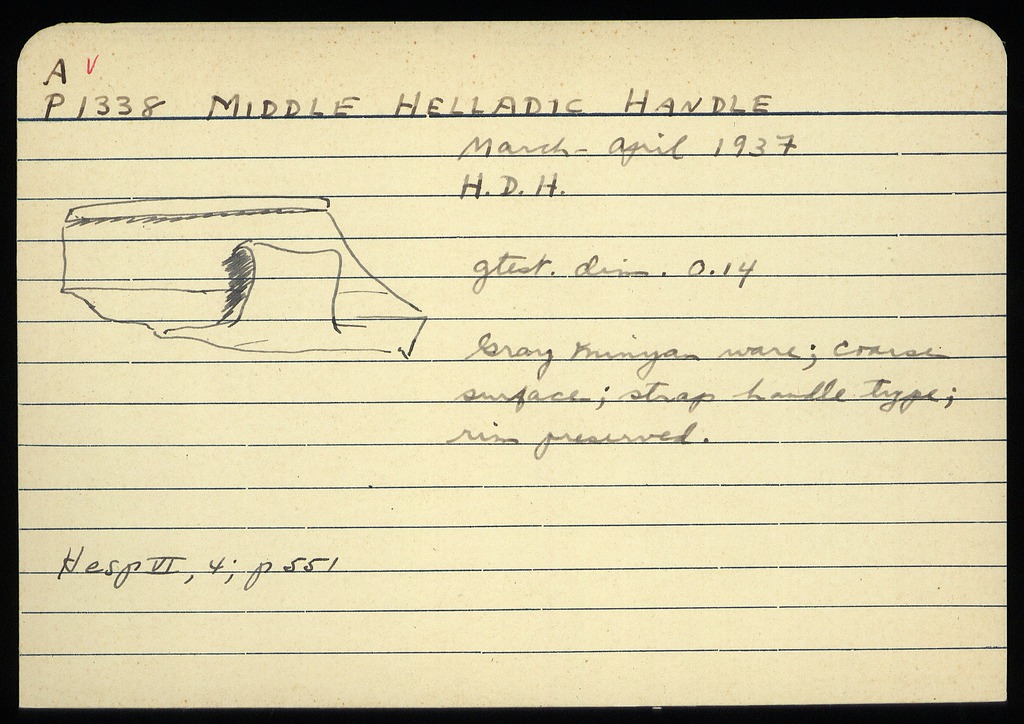 A V
P 1338 MIDDLE HELLADIC HANDLE
March - April 1937
H. D. H.
gtest. dim. 0.14
Gray Minyan ware; coarse
surface; strap handle type;
rim preserved.
Hesp VI, 4; p 551